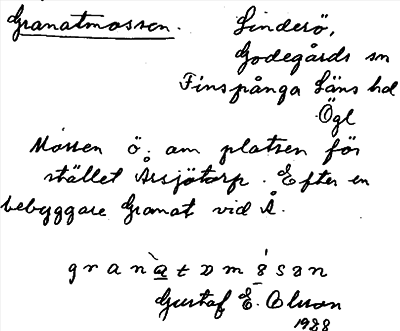 Granatmossen.
Sinderö,
Godegårds sn
Finspånga Läns hd
Ögl
Mossen ö. om platsen för
stället Årsjötorp. Efter en
bebyggare Granat vid Å.
Gustaf E. Olsson
1928